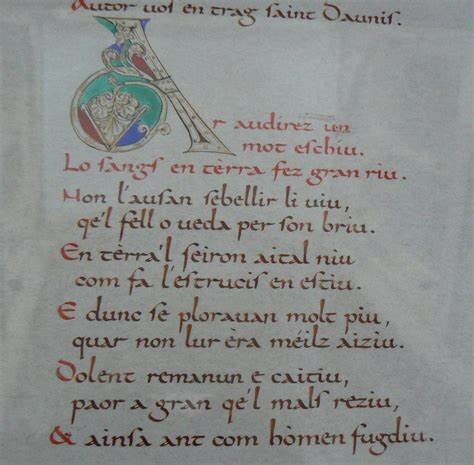 Autor vos en trag saint Daunis.
Ar audirez un
mot eschiu.
Lo sangs en tèrra fez gran riu.
Non l'ausan sebellir li viu,
qe'l fell o veda per son briu.
En tèrra'l feiron aital niu
com fa l'estrucis en estiu.
E dunc se ploravan molt piu,
quar non lur èra méilz aiziu.
Dolent remanun e caitiu,
paor a gran qe'l mals reziu,
& ainsa ant com hòmen fugdiu.